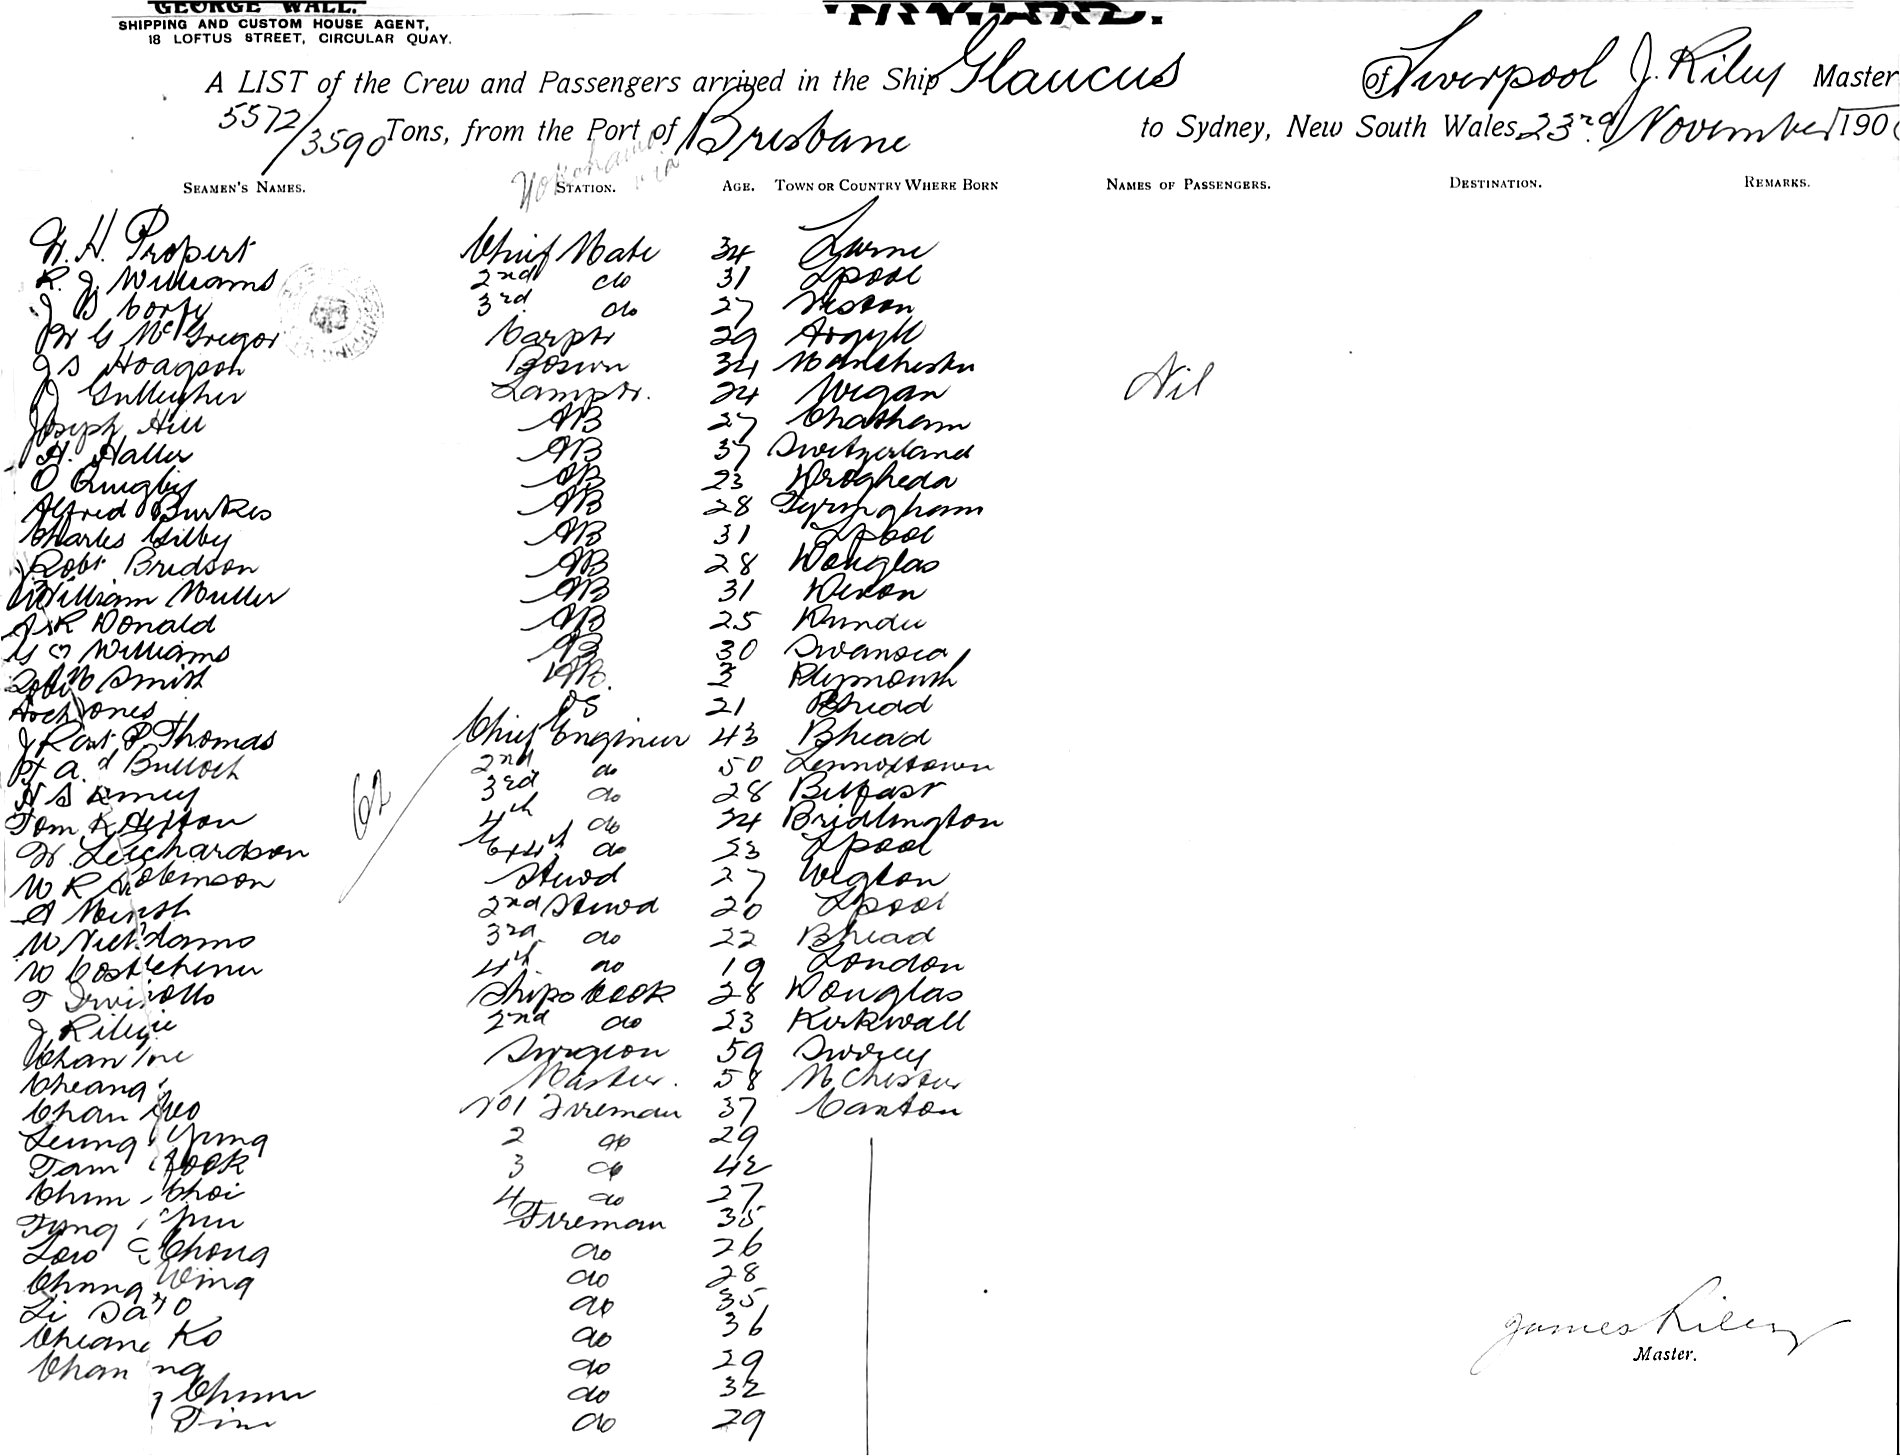 GEORGE WALL.
SHIPPING AND CUSTOM HOUSE AGENT,
18 LOFTUS STREET, CIRCULAR QUAY.
INWARD.
A LIST of the Crew and Passengers arrived in the Ship Glaucus of Liverpool J. Riley Master
5572/3590 Tons, from the Port of Brisbane to Sydney, New South Wales 23rd November 190
Yokohama via
SEAMEN'S NAMES. STATION. AGE. TOWN OR COUNTRY WHERE BORN NAMES OF PASSENGERS. DESTINATION. REMARKS.
W. H. Propert Chief Mate 34 Larne
R. J. Williams 2nd do 31 Lpool
J B Corfy 3rd do 27 Neston
W G McGregor Carptr 29 Argyll
J S Hodgson Bosun 34 Manchester
J Gullegher Lamptr. 24 Wigan Nil
Joseph Hill AB 27 Chatham
H. Haller AB 37 Switzerland
O Quigley AB 23 Drogheda
Alfred Burkes AB 28 Tyringham
Charles Gilby AB 31 Lpool
Robt Bridson AB 28 Douglas
William Muller AB 31 Devon
R Donald AB 25 Dundee
Williams AB 30 Swansea
Smith AB. Plymouth
Jones OS 21 Bhead
Thomas Chief Engineer 43 Bhead
Bulloch 2nd do 50 Lennoxtown
3rd do 28 Belfast
Tom K 4th do 24 Bridlington
W. 4th do 23 Lpool
W R Robinson Stewd 27 Wigton
2nd Stewd 20 Lpool
W 3rd do 22 Bhead
W 4th do 19 London
T Ships Cook 28 Douglas
J Riley 2nd do 23 Kirkwall
Chan Surgeon 59 Surrey
Cheang Master. 58 M Chester
Chan No 1 Fireman 37 Canton
Leung Yung 2 do 29
Tam Fook 3 do 42
Chun Choi 4 do 27
Tung Fireman 35
Low Chong do 26
Chung Wing do 28
Li do 35
Cheang Ko do 36
Chan do 29
Chun do 32
Tim do 29
62
James Riley
Master.